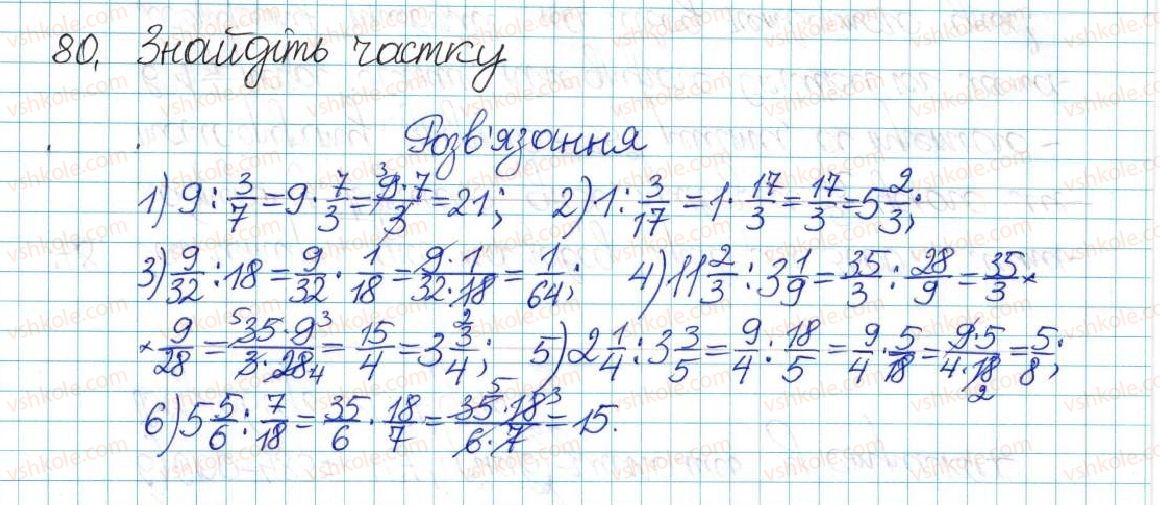 80, Знайдіть частку
Розв'язання
1) 9 : 3/7 = 9 · 7/3 = 9³·7/3 = 21; 2) 1 : 3/17 = 1 · 17/3 = 17/3 = 5 2/3;
3) 9/32 : 18 = 9/32 · 1/18 = 9·1/32·18 = 1/64; 4) 11 2/3 : 3 1/9 = 35/3 : 28/9 = 35/3 ×
× 9/28 = ⁵35·9³/3·28₄ = 15/4 = 3 3/4; 5) 2 1/4 : 3 3/5 = 9/4 : 18/5 = 9/4 · 5/18 = 9·5/4·18₂ = 5/8;
6) 5 5/6 : 7/18 = 35/6 · 18/7 = 35⁵·18³/6·7 = 15.